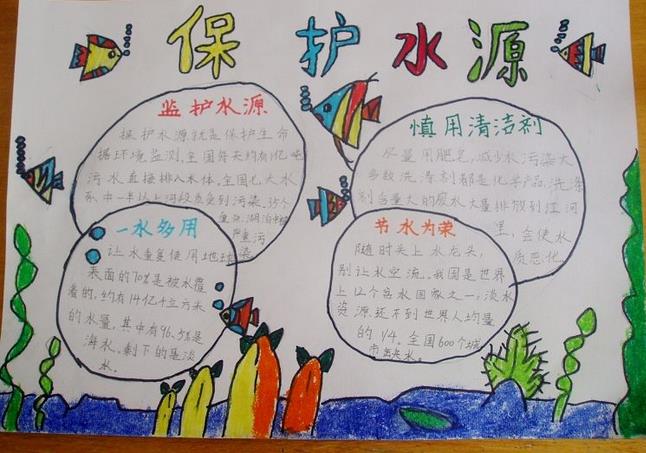 保护水源
监护水源
保护水源就是保护生命
据环境监测,全国每天约有1亿吨
污水直接排入水体。全国七大水
系中一半以上河段水质受到污染,35个
重点湖泊中
严重污
染
慎用清洁剂
尽量用肥皂,减少水污染大
多数洗涤剂都是化学产品,洗涤
剂含量大的废水大量排放到江河
里,会使水
质恶化。
一水多用
让水重复使用地球
表面的70%是被水覆
着的,约有14亿千立方米
的水量,其中有96.5%是
海水。剩下的是淡
水。
节水为荣
随时关上水龙头,
别让水空流。我国是世界
上12个贫水国家之一,淡水
资源还不到世界人均量
的1/4。全国600个城
市缺水。